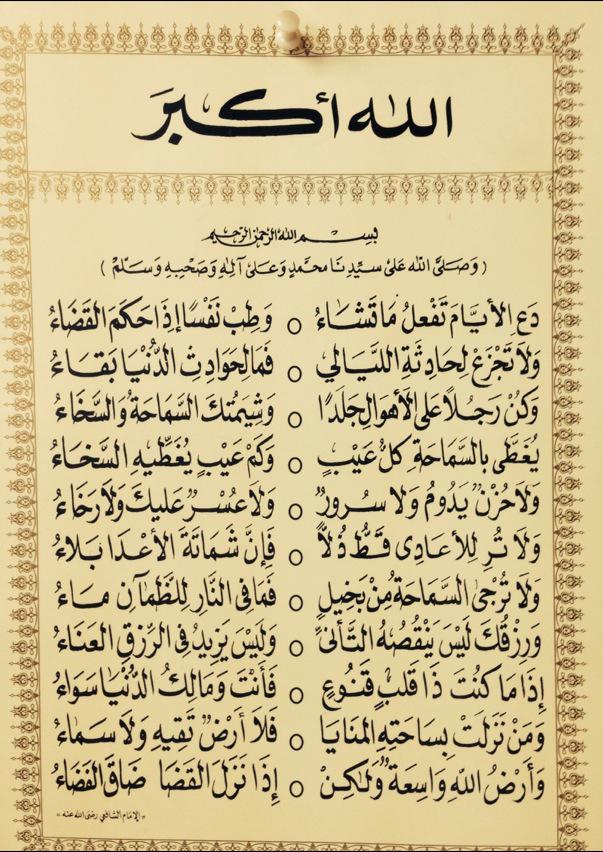 الله أكبر
بسم الله الرحمن الرحيم
( وَصَلَّى اللهُ عَلَىٰ سيِّدِنَا محمَّدٍ وَعَلىٰ آلِهِ وَصَحْبِهِ وَسَلَّمْ )
دَعِ الأيَّامَ تَفْعَلُ مَا تَشَاءُ ○ وَطِبْ نَفْسًا إِذَا حَكَمَ القَضَاءُ
وَلَا تَجْزَعْ لِحَادِثَةِ اللَّيَالِي ○ فَمَا لِحَوَادِثِ الدُّنْيَا بَقَاءُ
وَكُنْ رَجُلًا عَلَى الأَهْوَالِ جَلْدًا ○ وَشِيمَتُكَ السَّمَاحَةُ وَالسَّخَاءُ
يُغَطَّى بِالسَّمَاحَةِ كُلُّ عَيْبٍ ○ وَكَمْ عَيْبٍ يُغَطِّيهِ السَّخَاءُ
وَلَا حُزْنٌ يَدُومُ وَلَا سُرُورٌ ○ وَلَا عُسْرٌ عَلَيكَ وَلَا رَخَاءُ
وَلَا تُرِ لِلأَعَادِى قَطُّ ذُلًّا ○ فَإِنَّ شَمَاتَةَ الأَعْدَا بَلَاءُ
وَلَا تُرْجَى السَّمَاحَةُ مِنْ بَخِيلٍ ○ فَمَا فِى النَّارِ لِلظَّمْآنِ مَاءُ
وَرِزْقُكَ لَيْسَ يَنْقُصُهُ التَّأَنِّى ○ وَلَيْسَ يَزِيدُ فِى الرِّزْقِ العَنَاءُ
إِذَا مَا كُنْتَ ذَا قَلْبٍ قَنُوعٍ ○ فَأَنْتَ وَمَالِكُ الدُّنْيَا سَوَاءُ
وَمَنْ نَزَلَتْ بِسَاحَتِهِ المَنَايَا ○ فَلَا أَرْضٌ تَقِيهِ وَلَا سَمَاءُ
وَأَرْضُ اللهِ وَاسِعَةٌ وَلٰكِنْ ○ إِذَا نَزَلَ القَضَا ضَاقَ الفَضَاءُ
«الإمام الشافعي رضى الله عنه»